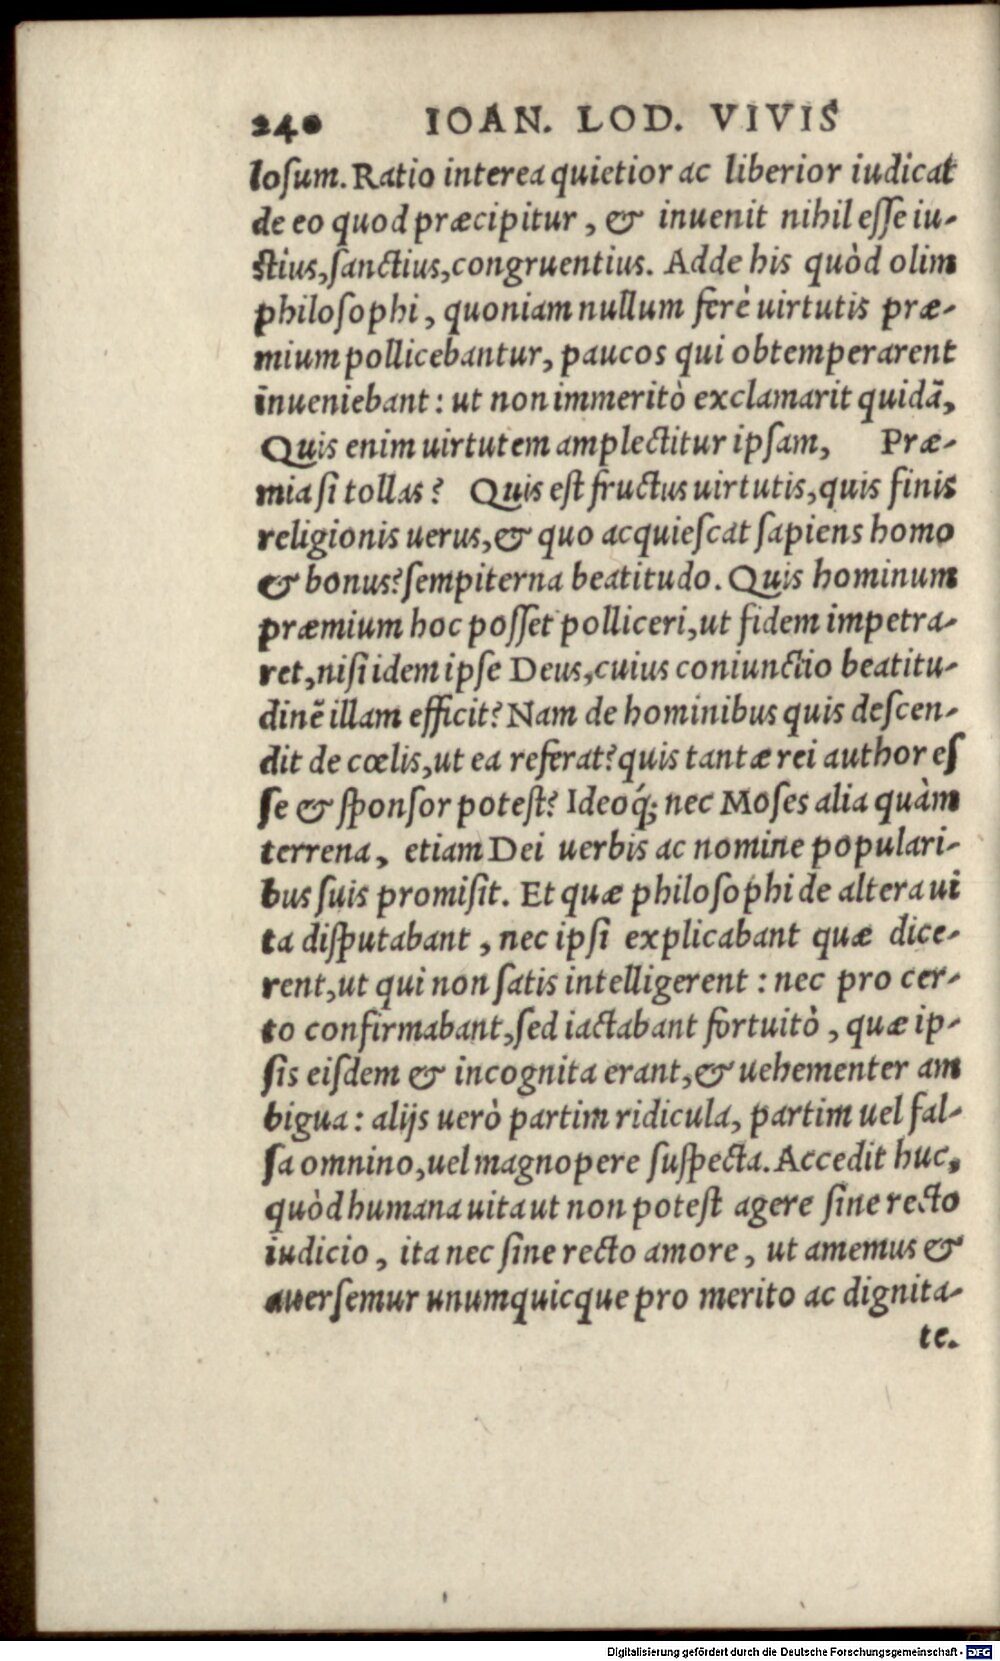 240 IOAN. LOD. VIVIS
losum. Ratio interea quietior ac liberior iudicat
de eo quod præcipitur, & inuenit nihil esse iu-
stius, sanctius, congruentius. Adde his quòd olim
philosophi, quoniam nullum ferè uirtutis præ-
mium pollicebantur, paucos qui obtemperarent
inueniebant: ut non immeritò exclamarit quidã,
Quis enim uirtutem amplectitur ipsam, Præ-
mia si tollas? Quis est fructus uirtutis, quis finis
religionis uerus, & quo acquiescat sapiens homo
& bonus? sempiterna beatitudo. Quis hominum
præmium hoc posset polliceri, ut fidem impetra-
ret, nisi idem ipse Deus, cuius coniunctio beatitu-
dinẽ illam efficit? Nam de hominibus quis descen-
dit de cœlis, ut ea referat? quis tantæ rei author es
se & sponsor potest? Ideoq́; nec Moses alia quàm
terrena, etiam Dei uerbis ac nomine populari-
bus suis promisit. Et quæ philosophi de altera ui
ta disputabant, nec ipsi explicabant quæ dice-
rent, ut qui non satis intelligerent: nec pro cer-
to confirmabant, sed iactabant fortuitò, quæ ip-
sis eisdem & incognita erant, & uehementer am
bigua: alijs uerò partim ridicula, partim uel fal-
sa omnino, uel magnopere suspecta. Accedit huc,
quòd humana uita ut non potest agere sine recto
iudicio, ita nec sine recto amore, ut amemus &
auersemur unumquicque pro merito ac dignita-
te.
Digitalisierung gefördert durch die Deutsche Forschungsgemeinschaft - DFG